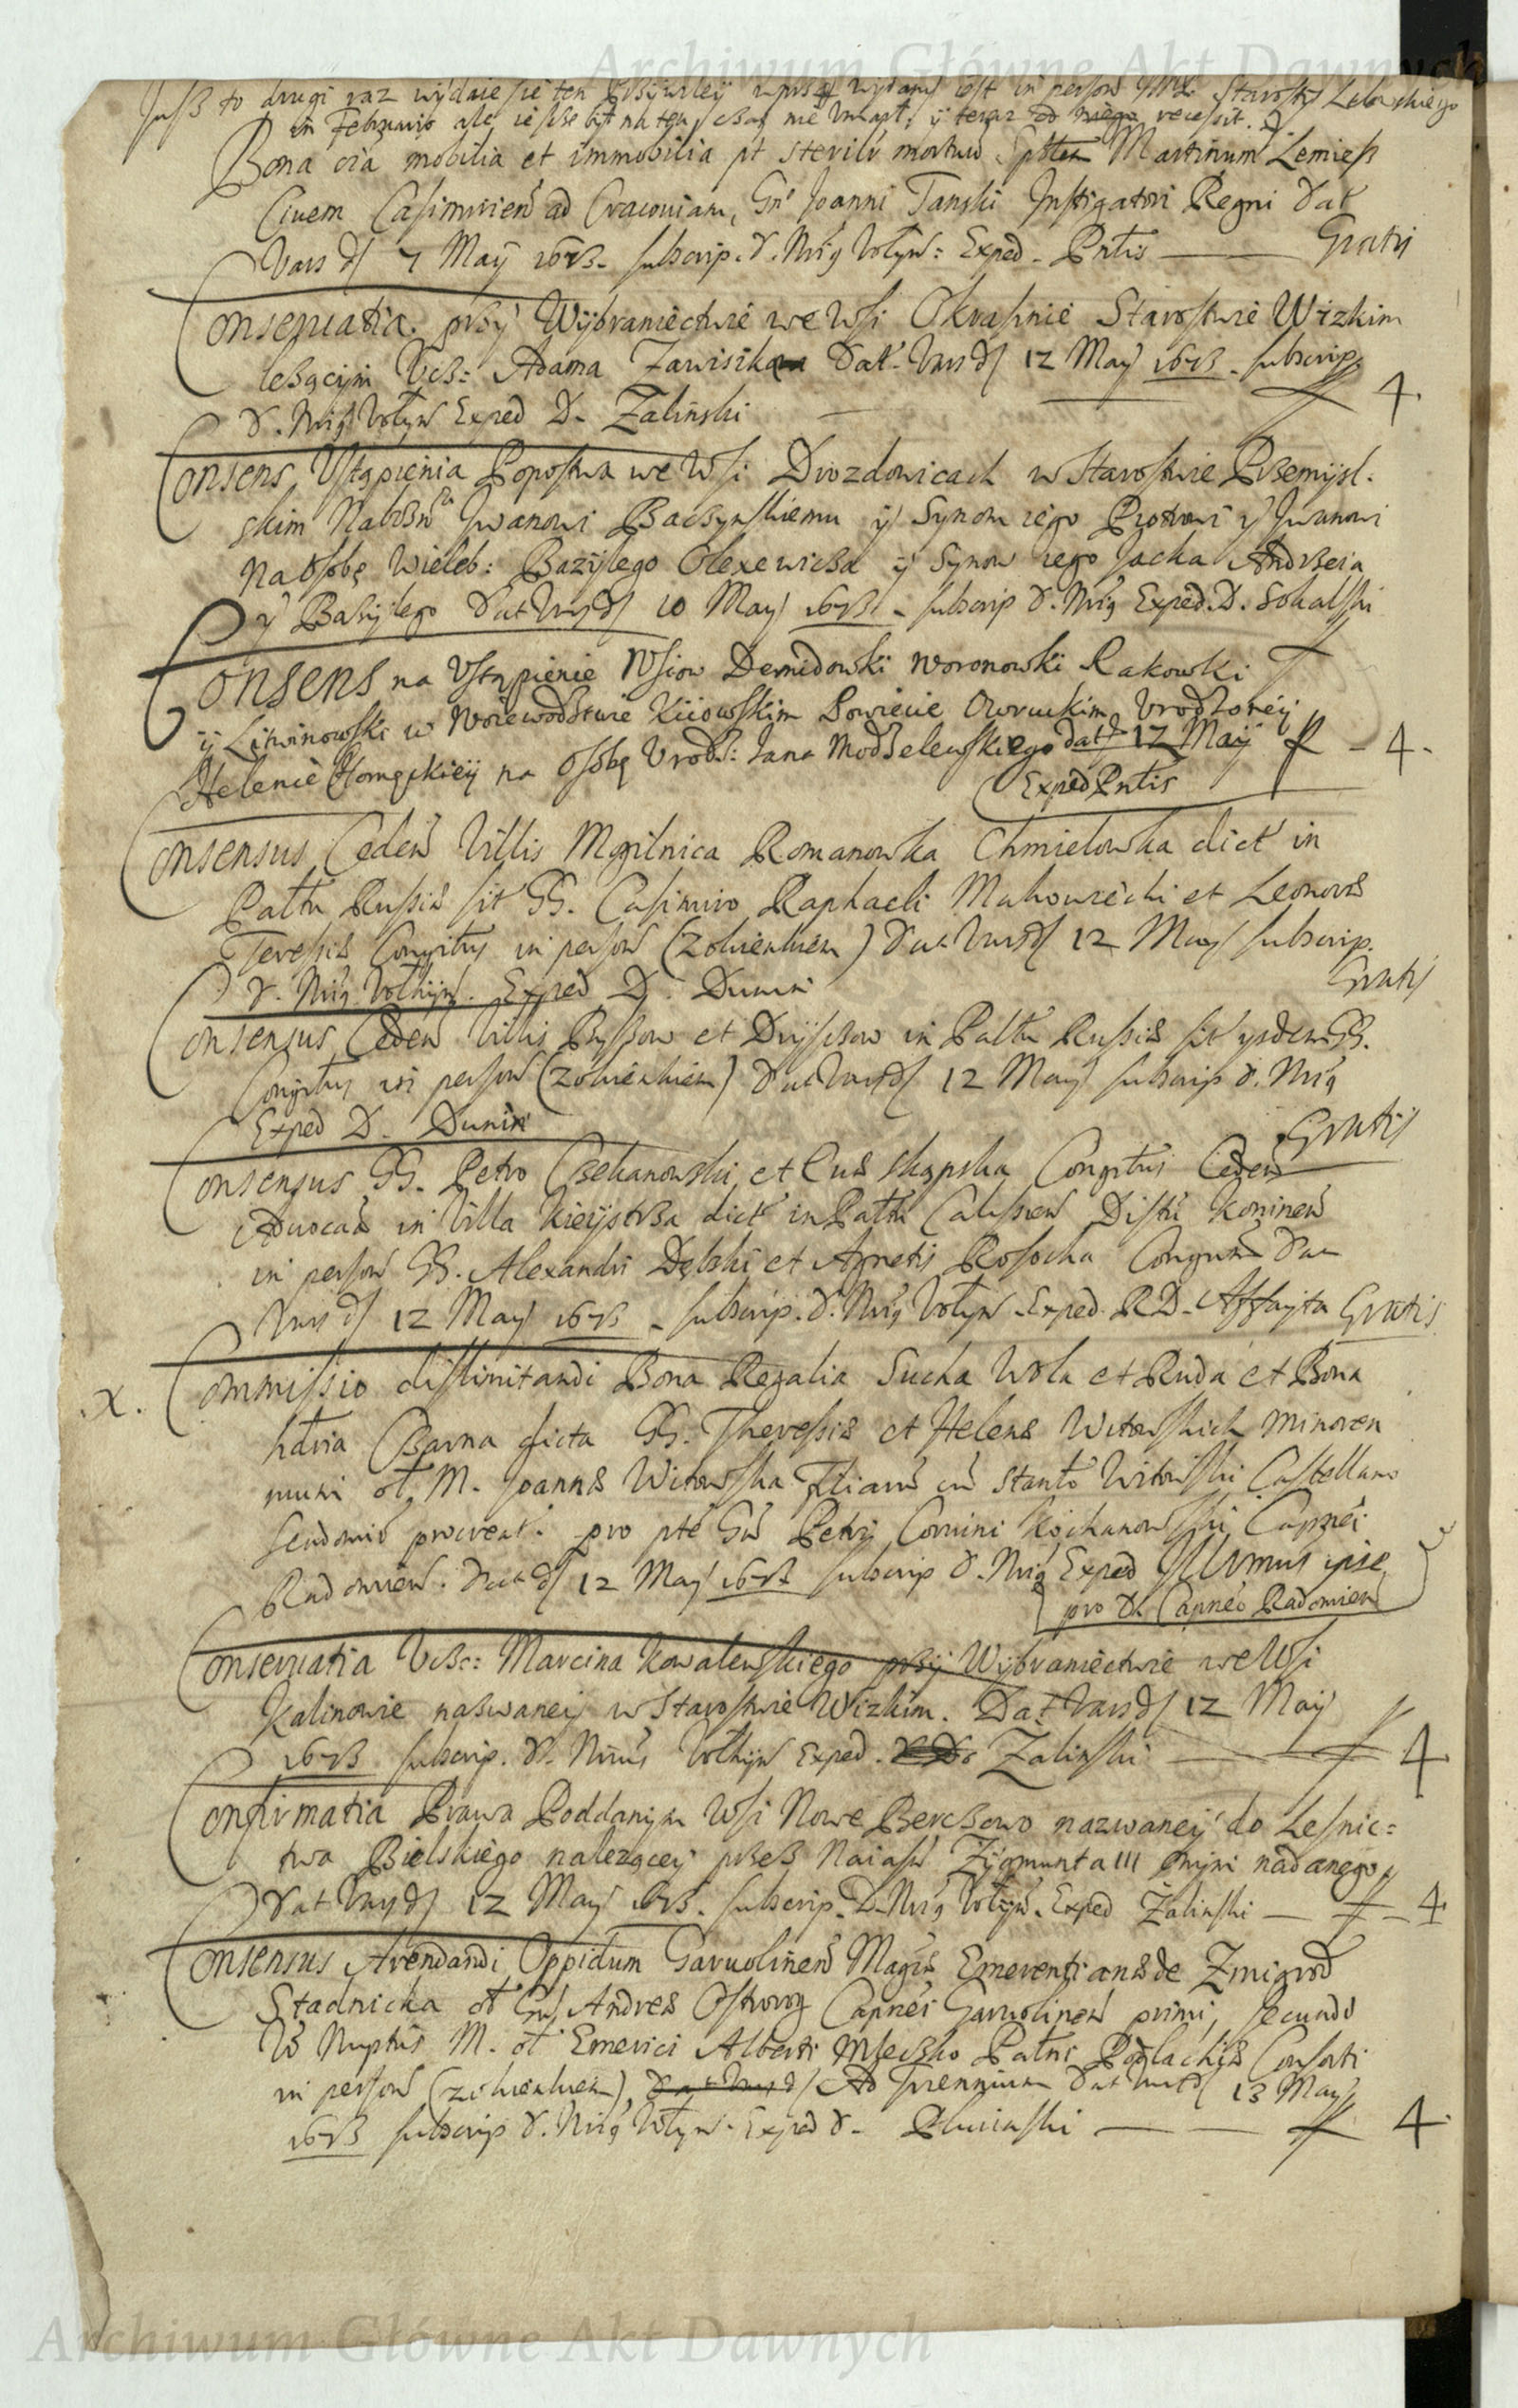 Archiwum Główne Akt Dawnych
Jusz to drugi raz wydaie sie ten Przywiley wydany iest in person Starosty Zelowskiego
in Februario ale ieszcze był na ten czas nie umarł, y teraz od niego recessit.
Bona oia mobilia et immobilia pt sterilr mortuo Martinum Lemiesz
Civem Casimirien ad Cracoviam, Gn Joanni Tanski Instigatori Regni Dat
Vars d 7 May 1673. subscrip. V. Mig Wołyn: Exped. Pntis — Gratis
Conseruatia przy Wybraniectwie we Wsi Okrasinie Starostwie Wizkim
leżącym Ucz: Adama Zawiszka Dat Vars d 12 May 1673. subscrip.
V. Mig Wołyn Exped D. Zalinski — 4.
Consens Ustąpienia Popostwa we Wsi Drozdowicach w Starostwie Przemysl-
skim Nabożn Iwanowi Baczynskiemu y Synom iego Piotrowi y Iwanowi
na Osobę Wieleb: Bazylego Olexewicza y Synow iego Jacka Andrzeia
y Bazylego Dat Vars d 10 May 1673. subscrip V. Mig Exped. D. Sokalski
Consens na Ustąpienie Wsiow Demidowski Woronowski Rakowki
y Litwinowski w Woiewodztwie Kiiowskim Powiecie Owruckim Urodzoney
Helenie na Osobę Urodz: Jana Modzelewskiego dat d 12 May — 4.
Exped Pntis
Consensus Ceden Villis Mogilnica Romanowka Chmielowka dict in
Pałtu Russiæ sit GG. Casimiro Raphaeli Makowiecki et Leonoræ
Teressiæ Congibus in person (żołnierkiem) Dat Vars d 12 May subscrip.
V. Mig Wołhyn. Exped D. Dunin Gratis
Consensus Ceden Villis Byszow et Dryszczow in Pałtu Russiæ sit ysdem GG.
Congibus in person (żołnierkiem) Dat Vars d 12 May subscrip V. Mig
Exped D. Dunin Gratis
Consensus GG. Petro Czekanowski et Evæ Skąpska Congibus Ceden
Advocan in Villa Kieystrza dict in Pałtu Calissien Distu Koninen
in person GG. Alexandri Dębski et Agnetis Rosocka Congum Dat
Vars d 12 May 1673. subscrip. V. Mig Wołyn. Exped. R D. Affayta Gratis
X. Commissio dislimitandi Bona Regalia Sucha Wola et Ruda et Bona
hdria Czarna dicta GG. Theressiæ et Helenæ Witowskich minoren
num ol M. Joannæ Witowska Filiaru cu Stanlo Witowski Castellano
Sendomir procreat. pro pte Gn Petri Corvini Kochanowski Capnei
Radomien. Dat d 12 May 1673 subscrip V. Mig Exped Illrmus ipse
pro D. Capneo Radomien
Conseruatia Ucz: Marcina Kowalewskiego przy Wybraniectwie we Wsi
Kalinowie naswaney w Starostwie Wizkim. Dat Vars d 12 May
1673 subscrip. V. Mig Wołhyn Exped. Zalinski — 4
Confirmatia Prawa Poddanym Wsi Nowe Berezowo nazwaney do Lesnic=
twa Bielskiego nalezącey przez Naiasn Zygmunta III onym nadanego,
Dat Vars d 12 May 1673. subscrip. D. Mig Wołyn. Exped Żalinski — 4
Consensus Arendandi Oppidum Garwolinen Magcæ Emerentianæ de Zmigrod
Stadnicka ol Gn Andreæ Ostrorog Capnei Garwolinen primi, secundo
Vo Nuptiis M. ol Emerici Alberti Mleczko Pałni Podlachiæ Consorti
in person (żołnierkiem) Ad Triennium Dat Vars d 13 May
1673 subscrip V. Mig Wołyn. Exped D. — 4
Archiwum Główne Akt Dawnych